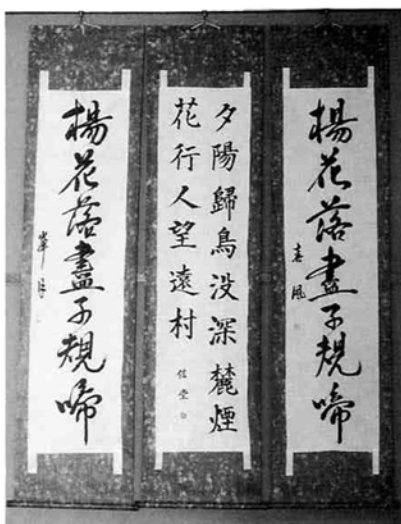 楊花落盡子規啼
夕陽歸鳥没深麓煙
花行人望遠村
楊花落盡子規啼